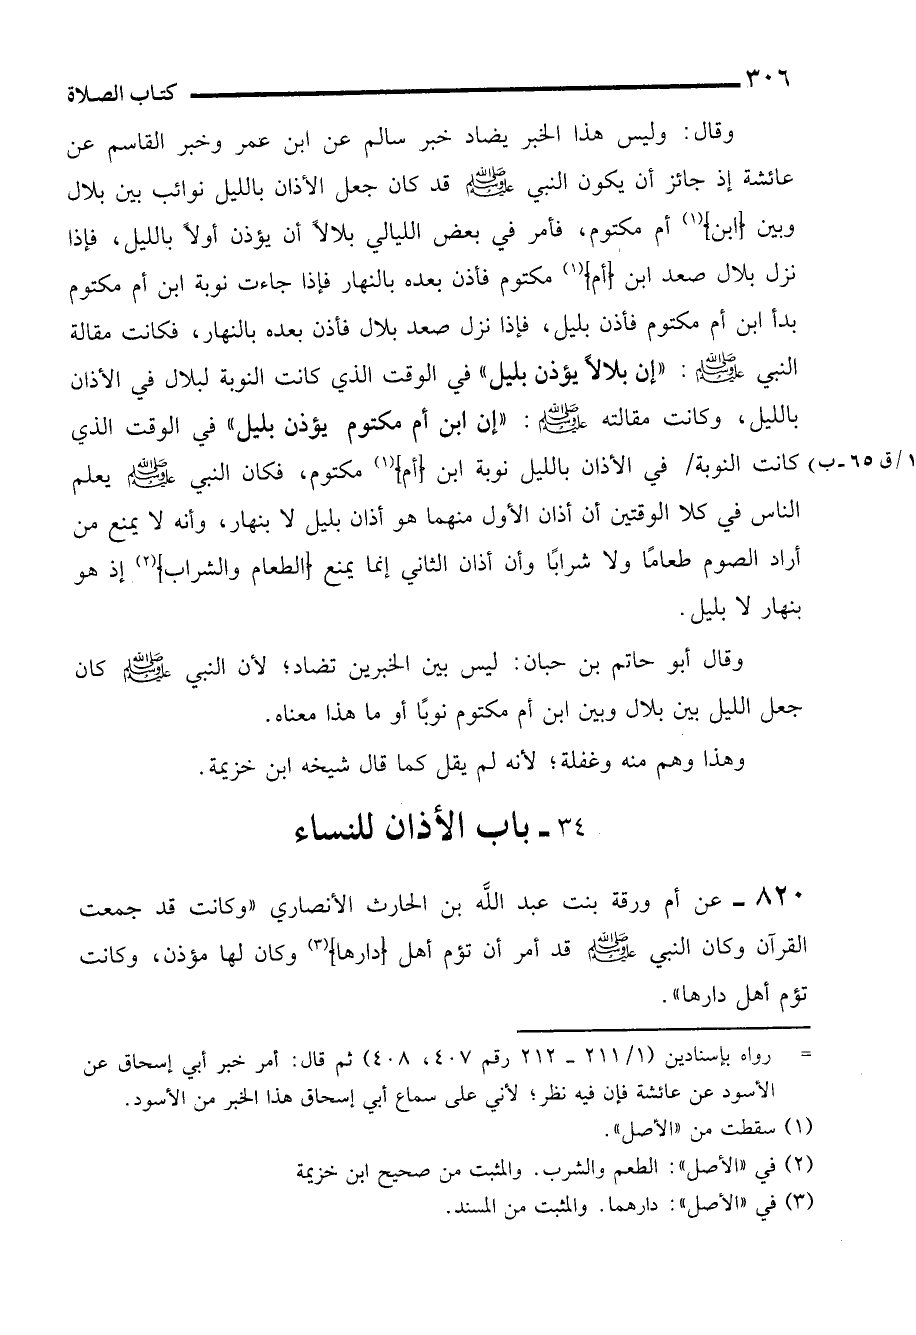 ٣٠٦ كتاب الصلاة
وقال: وليس هذا الخبر يضاد خبر سالم عن ابن عمر وخبر القاسم عن
عائشة إذ جائز أن يكون النبي ﷺ قد كان جعل الأذان بالليل نوائب بين بلال
وبين {ابن}(١) أم مكتوم، فأمر في بعض الليالي بلالاً أن يؤذن أولاً بالليل، فإذا
نزل بلال صعد ابن {أم}(١) مكتوم فأذن بعده بالنهار فإذا جاءت نوبة ابن أم مكتوم
بدأ ابن أم مكتوم فأذن بليل، فإذا نزل صعد بلال فأذن بعده بالنهار، فكانت مقالة
النبي ﷺ: «إن بلالاً يؤذن بليل» في الوقت الذي كانت النوبة لبلال في الأذان
بالليل، وكانت مقالته ﷺ: «إن ابن أم مكتوم يؤذن بليل» في الوقت الذي
١/ق ٦٥-ب) كانت النوبة/ في الأذان بالليل نوبة ابن {أم}(١) مكتوم، فكان النبي ﷺ يعلم
الناس في كلا الوقتين أن أذان الأول منهما هو أذان بليل لا بنهار، وأنه لا يمنع من
أراد الصوم طعامًا ولا شرابًا وأن أذان الثاني إنما يمنع {الطعام والشراب}(٢) إذ هو
بنهار لا بليل.
وقال أبو حاتم بن حبان: ليس بين الخبرين تضاد؛ لأن النبي ﷺ كان
جعل الليل بين بلال وبين ابن أم مكتوم نوبًا أو ما هذا معناه.
وهذا وهم منه وغفلة؛ لأنه لم يقل كما قال شيخه ابن خزيمة.
٣٤ ـ باب الأذان للنساء
٨٢٠ ـ عن أم ورقة بنت عبد اللَّه بن الحارث الأنصاري «وكانت قد جمعت
القرآن وكان النبي ﷺ قد أمر أن تؤم أهل {دارها}(٣) وكان لها مؤذن، وكانت
تؤم أهل دارها».
= رواه بإسنادين (١/ ٢١١ ـ ٢١٢ رقم ٤٠٧، ٤٠٨) ثم قال: أمر خبر أبي إسحاق عن
الأسود عن عائشة فإن فيه نظر؛ لأني على سماع أبي إسحاق هذا الخبر من الأسود.
(١) سقطت من «الأصل».
(٢) في «الأصل»: الطعم والشرب. والمثبت من صحيح ابن خزيمة
(٣) في «الأصل»: دارهما. والمثبت من المسند.